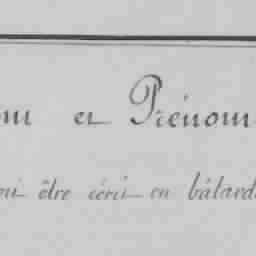 om et Prénom
oit être écrit en bâtard